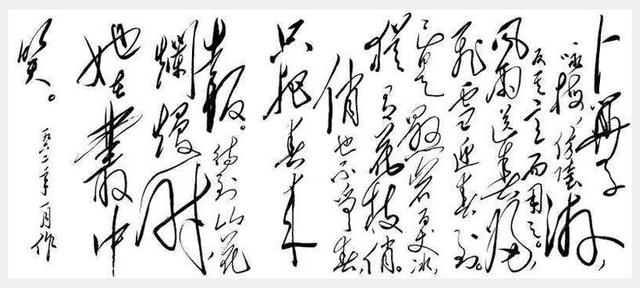 卜算子
咏梅,仿陆游,
反其意而用之。
风雨送春归,
飞雪迎春到。
已是悬岩百丈冰,
犹有花枝俏。
俏也不争春,
只把春来
報。待到山花
爛熳时,
她在叢中
笑。
一九六二年一月作